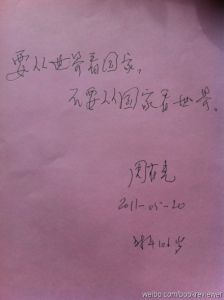 要从世界看国家，
不要从国家看世界。
周有光
2011-05-20
时年106岁
weibo.com/bookreviewer